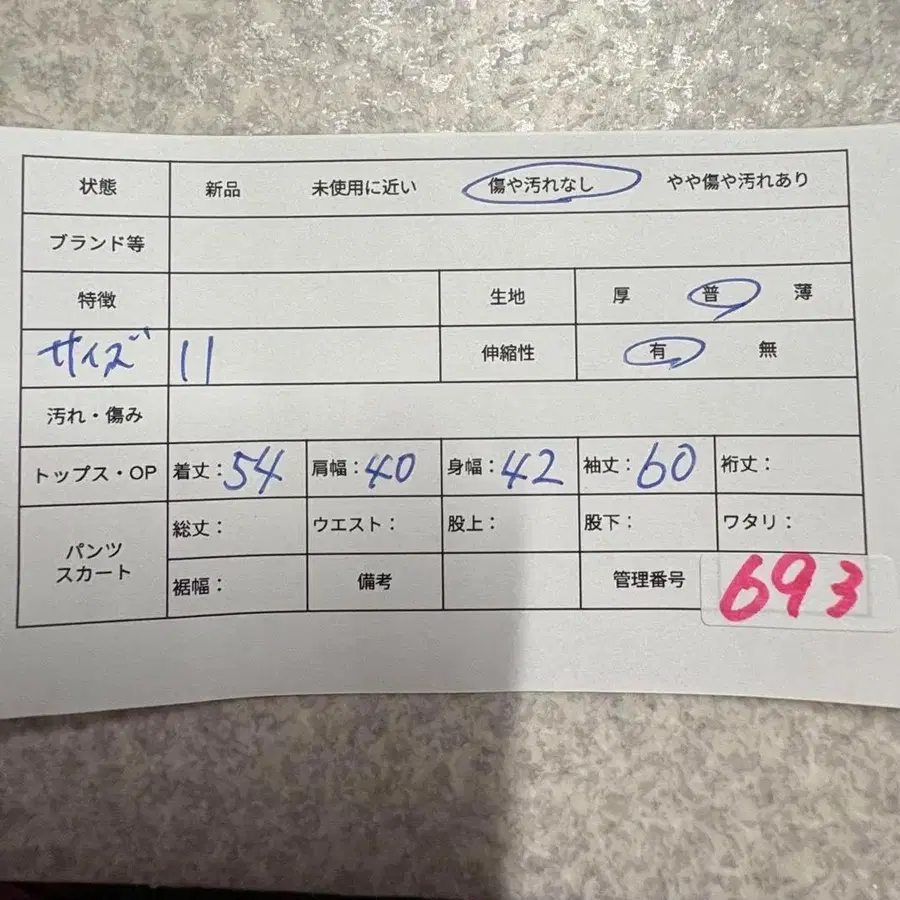 状態 新品 未使用に近い 傷や汚れなし やや傷や汚れあり
ブランド等
特徴 生地 厚 普 薄
サイズ 11 伸縮性 有 無
汚れ・傷み
トップス・OP 着丈：54 肩幅：40 身幅：42 袖丈：60 裄丈：
パンツ
スカート
総丈： ウエスト： 股上： 股下： ワタリ：
裾幅： 備考 管理番号 693